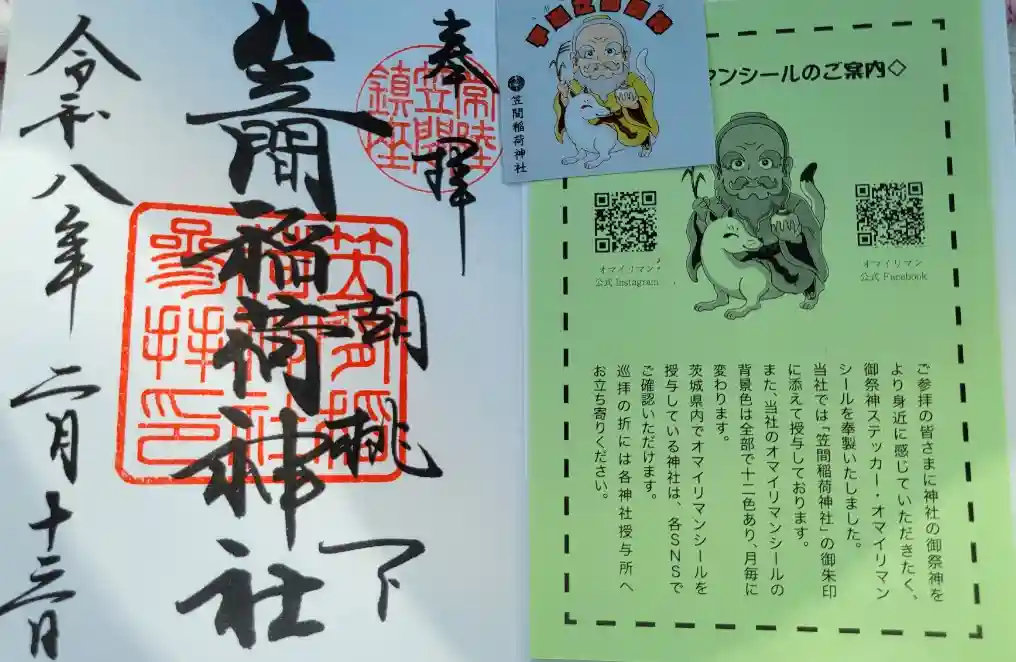 奉拝
胡桃下
笠間稲荷神社
令和八年二月十三日
常陸
笠間
鎮座
笠間稲荷神社
マンシールのご案内◇
オマイリマン
公式 Instagram
オマイリマン
公式 Facebook
ご参拝の皆さまに神社の御祭神を
より身近に感じていただきたく、
御祭神ステッカー・オマイリマン
シールを奉製いたしました。
当社では「笠間稲荷神社」の御朱印
に添えて授与しております。
また、当社のオマイリマンシールの
背景色は全部で十二色あり、月毎に
変わります。
茨城県内でオマイリマンシールを
授与している神社は、各SNSで
ご確認いただけます。
巡拝の折には各神社授与所へ
お立ち寄りください。